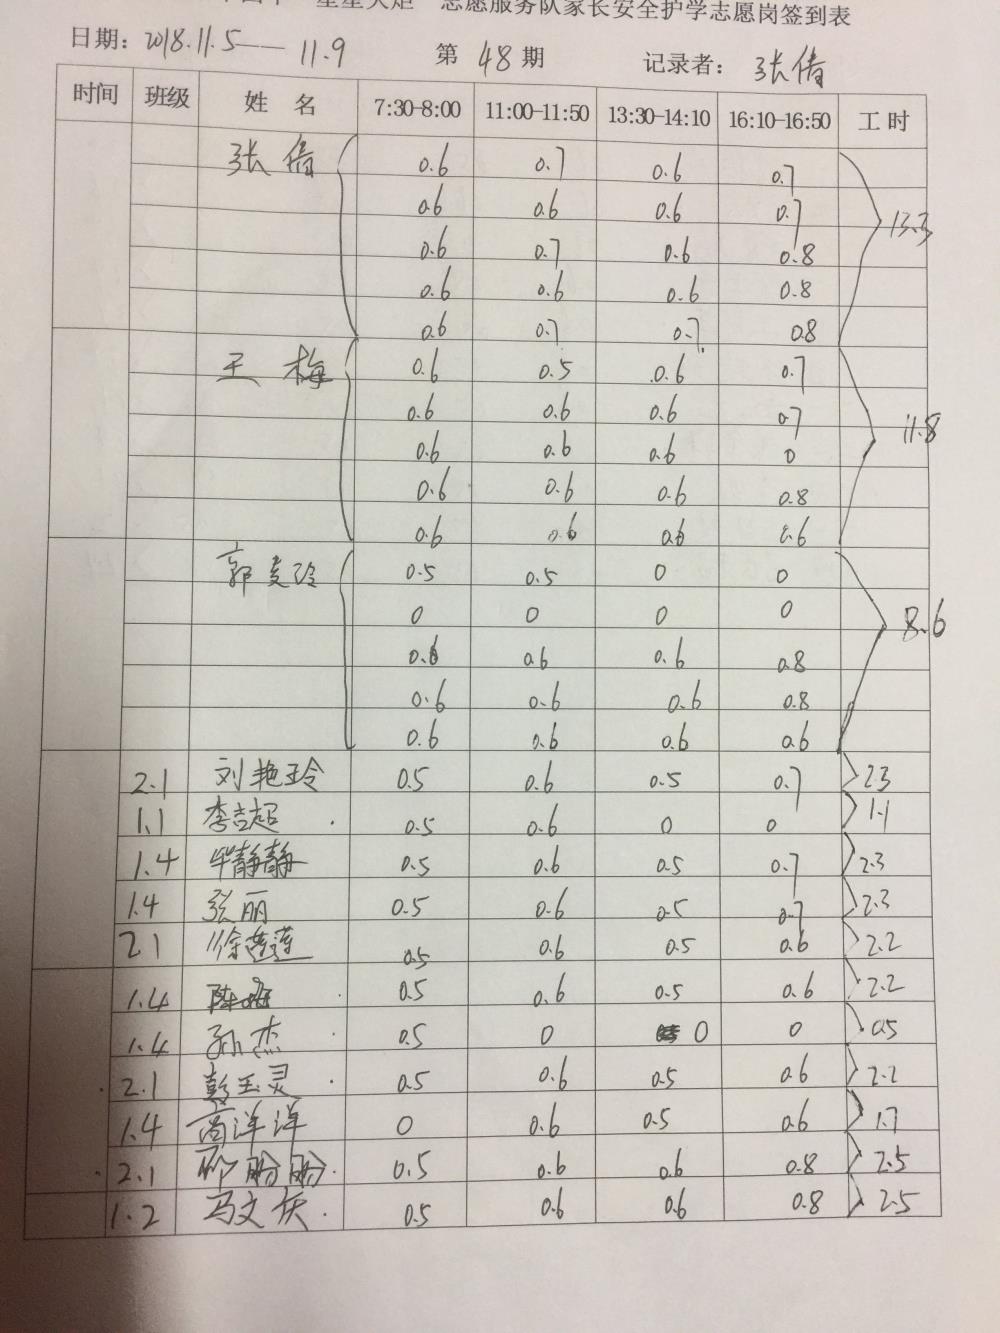 志愿服务队家长安全护学志愿岗签到表
日期: 2018.11.5——11.9 第 48 期 记录者: 张倩
时间 班级 姓 名 7:30-8:00 11:00-11:50 13:30-14:10 16:10-16:50 工时
张倩 0.6 0.7 0.6 0.7
0.6 0.6 0.6 0.7 13.3
0.6 0.7 0.6 0.8
0.6 0.6 0.6 0.8
0.6 0.7 0.7 0.8
王梅 0.6 0.5 0.6 0.7
0.6 0.6 0.6 0.7 11.8
0.6 0.6 0.6 0
0.6 0.6 0.6 0.8
0.6 0.6 0.6 0.6
郭 玲 0.5 0.5 0 0
0 0 0 0 8.6
0.6 0.6 0.6 0.8
0.6 0.6 0.6 0.8
0.6 0.6 0.6 0.6
2.1 刘艳玲 0.5 0.6 0.5 0.7 2.3
1.1 李吉超 0.5 0.6 0 0 1.1
1.4 毕静静 0.5 0.6 0.5 0.7 2.3
1.4 张丽 0.5 0.6 0.5 0.7 2.3
2.1 徐莲莲 0.5 0.6 0.5 0.6 2.2
1.4 陈 0.5 0.6 0.5 0.6 2.2
1.4 孙杰 0.5 0 0 0 0.5
2.1 彭玉灵 0.5 0.6 0.5 0.6 2.2
1.4 商洋洋 0 0.6 0.5 0.6 1.7
2.1 盼盼 0.5 0.6 0.6 0.8 2.5
1.2 马文 0.5 0.6 0.6 0.8 2.5